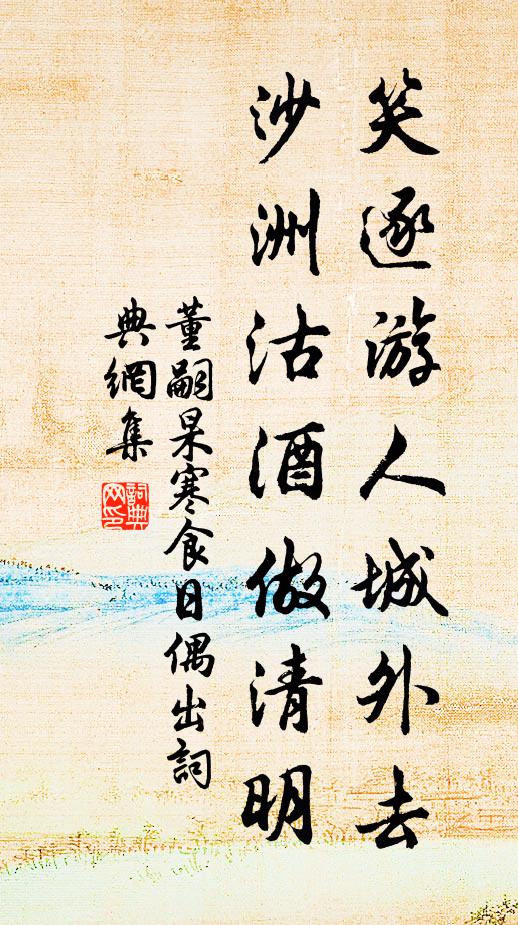 笑逐游人城外去
沙洲沽酒做清明
董嗣杲寒食日偶出詞
典網集
詞典
网印